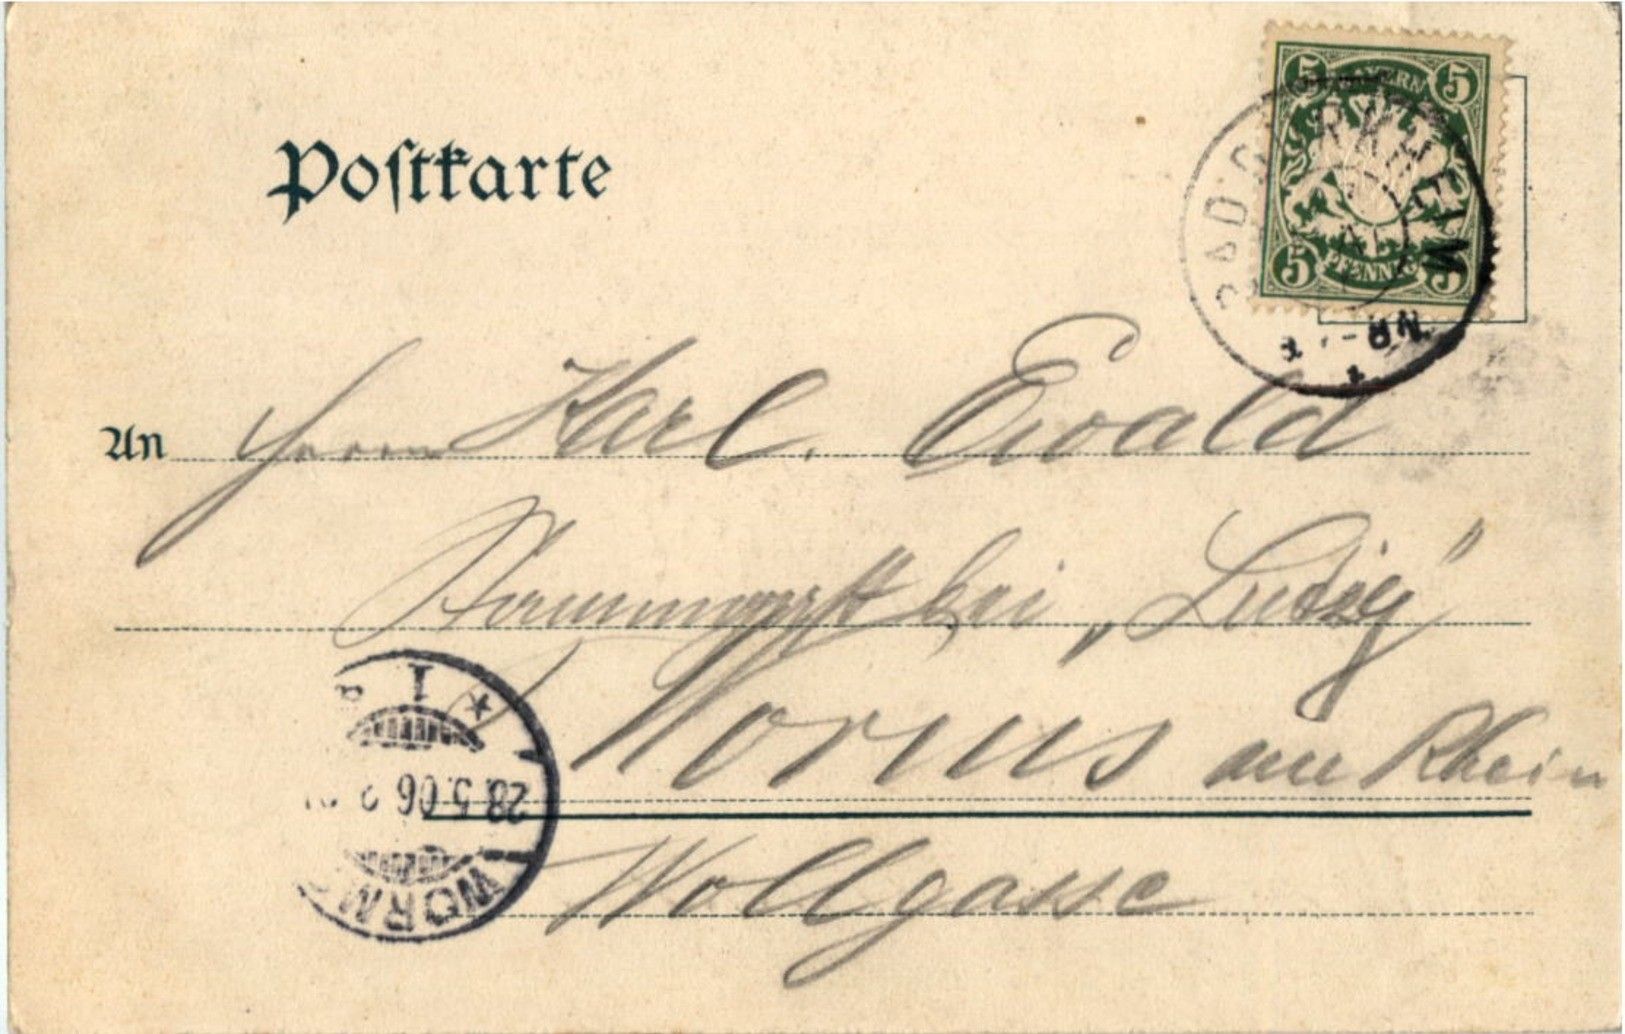 Postkarte
BAYERN
5 5
5 5
PFENNIG
BAD DÜRKHEIM
An Herrn Karl. Ewald
bei „Ludwig"
Worms am Rhein
Wollgasse
* 1
28.5.06
WORMS